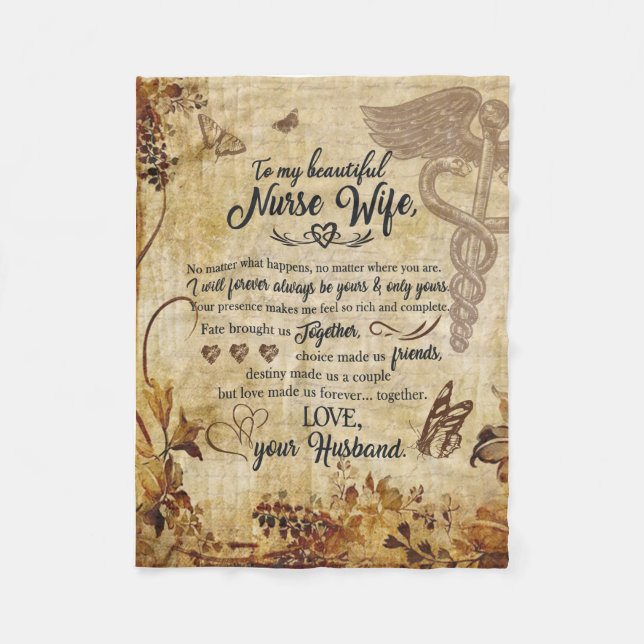 To my beautiful
Nurse Wife,
No matter what happens, no matter where you are.
I will forever always be yours & only yours.
Your presence makes me feel so rich and complete.
Fate brought us Together,
choice made us friends,
destiny made us a couple
but love made us forever... together.
LOVE,
your Husband.